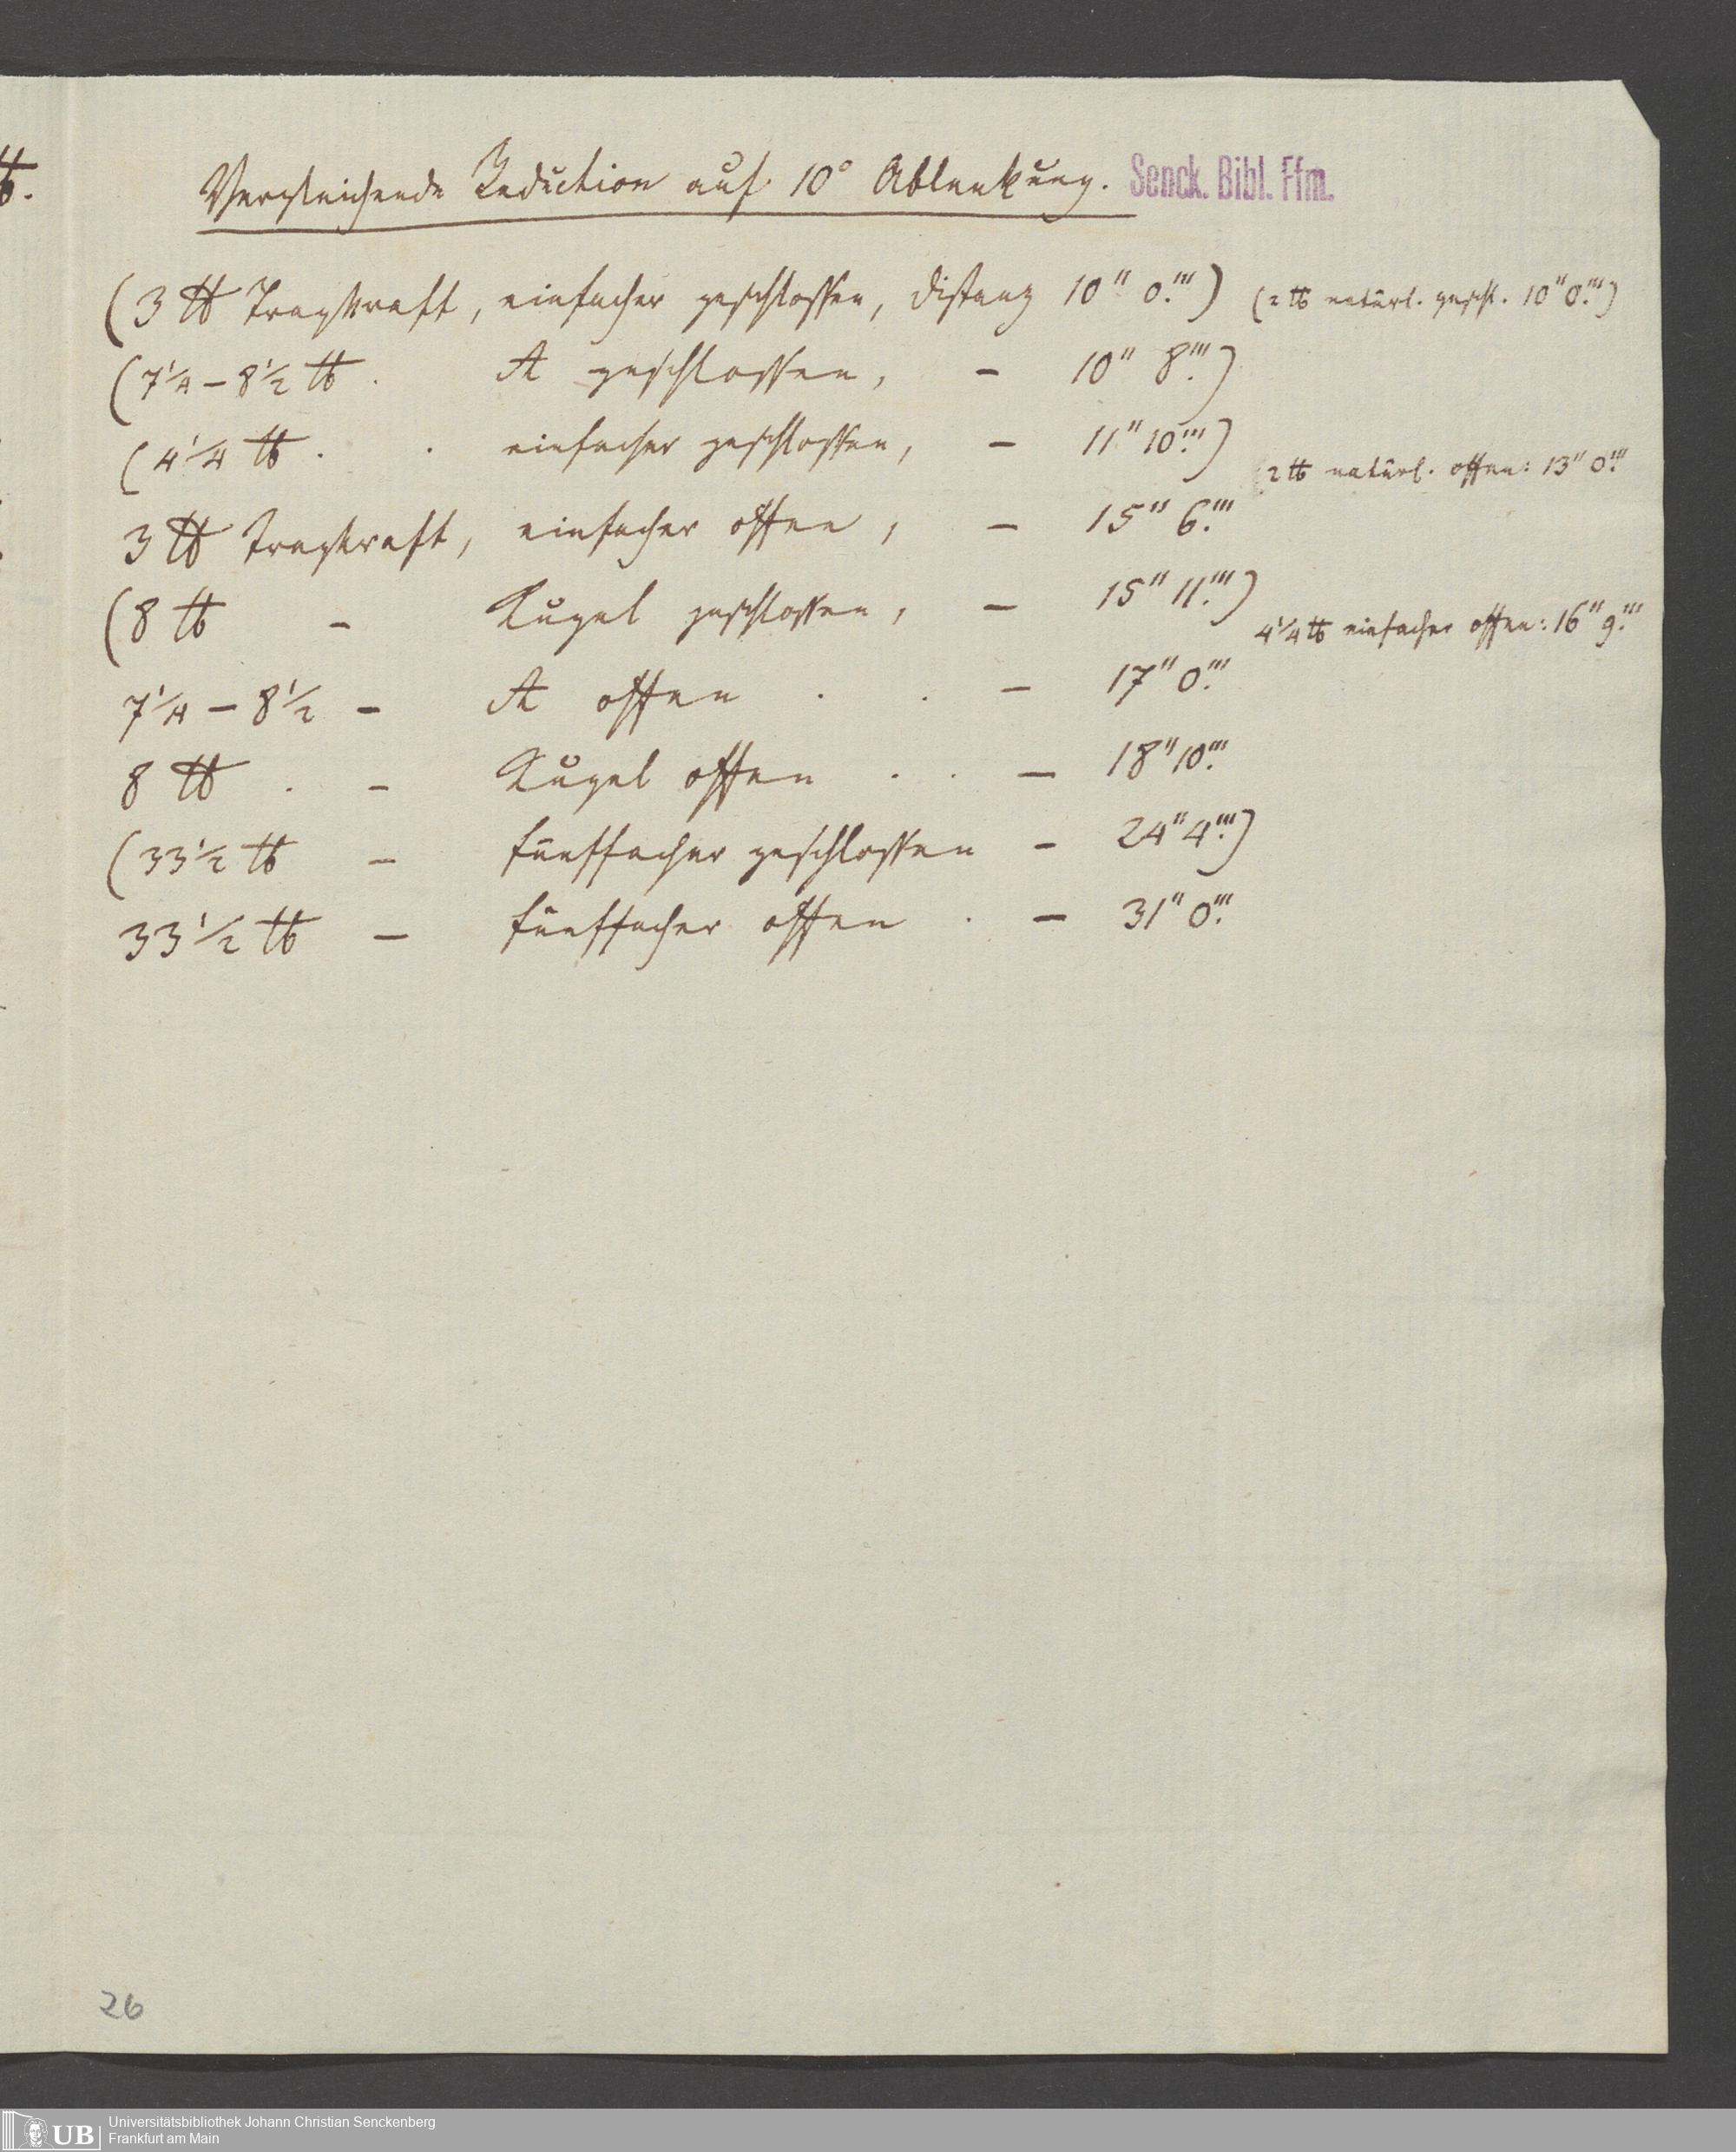 ℔.
Vergleichende Reduction auf 10° Ablenkung. Senck. Bibl. Ffm.
(3 ℔ Tragkraft, einfacher geschlossen, Distanz 10" 0.''') (2 ℔ natürl. geschl. 10" 0.''')
(7 1/4 – 8 1/2 ℔ . A geschlossen, – 10" 8.''')
(4 1/4 ℔ . . einfacher geschlossen, – 11" 10.''')
(2 ℔ natürl. offen: 13" 0.'''
3 ℔ Tragkraft, einfacher offen, – 15" 6.'''
(8 ℔ – Kugel geschlossen, – 15" 11.''')
4 1/4 ℔ einfacher offen: 16" 9.'''
7 1/4 – 8 1/2 – A offen . . – 17" 0.'''
8 ℔ . – Kugel offen . . – 18" 10.'''
(33 1/2 ℔ – fünffacher geschlossen – 24" 4.''')
33 1/2 ℔ – fünffacher offen . – 31" 0.'''
26
UB
Universitätsbibliothek Johann Christian Senckenberg
Frankfurt am Main